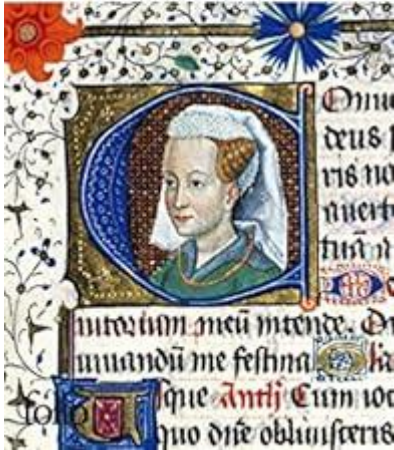 Conue
deus s
ris no
auert
tuā a
D
iutorium meū intende. D
iuuandū me festina
Usque Anth Cum ioc
quo dñe obliuisceris
folio